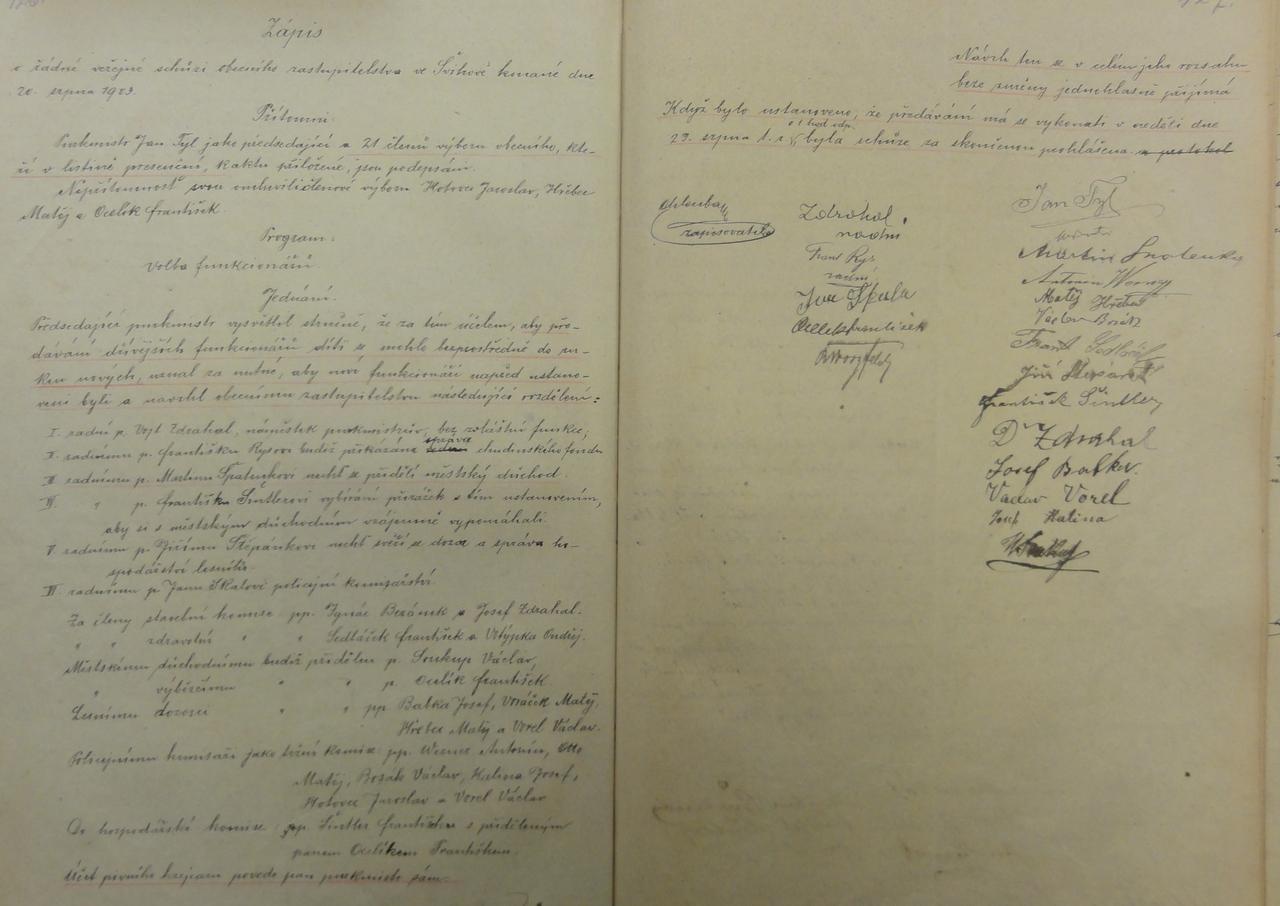 Zápis
o řádné veřejné schůzi obecního zastupitelstva ve Švihově konané dne
20. srpna 1903.
Přítomni:
Purkmistr Jan Tyl jako předsedající a 21 členů výboru obecního, kte-
ří v listině presenční, kaktu přiložené, jsou podepsáni.
Nepřítomnost svou omluvili členové výboru Hotovec Jaroslav, Hřebec
Matěj a Ocelík František.
Program:
Volba funkcionářů.
Jednání.
Předsedající purkmistr vysvětlil stručně, že za tím účelem, aby pře-
dávání dřívějších funkcionářů díti se mohlo bezprostředně do ru-
kou nových, uznal za nutné, aby noví funkcionáři napřed ustano-
veni byli a navrhl obecnímu zastupitelstvu následující rozdělení:
I. radní p. Vojt. Zdrahal, náměstek purkmistrův, bez zvláštní funkce;
II. radnímu p. Františku Rysovi budiž přikázána správa chudinského fondu
III. radnímu p. Martinu Špatenkovi nechť se přidělí městský důchod.
IV. " p. Františku Šintlerovi vybírání přirážek s tím ustanovením,
aby si s městským důchodním vzájemně vypomáhali.
V. radnímu p. Jiřímu Štěpánkovi nechť svěří se dozor a správa ho-
spodářství lesního.
VI. radnímu p. Janu Škalovi policejní komisařství.
Za členy stavební komise: pp. Ignác Beránek a Josef Zdrahal.
" " zdravotní " " Sedláček František a Votýpka Ondřej.
Městskému důchodnímu budiž přidělen p. Soukup Václav,
" výběrčímu " " p. Ocelík František.
Lesnímu dozorci " " pp. Babka Josef, Voráček Matěj,
Hřebec Matěj a Vorel Václav.
Policejnímu komisaři jako tržní komise: pp. Werner Antonín, Otto
Matěj, Bozák Václav, Kalina Josef,
Hotovec Jaroslav a Vorel Václav
Do hospodářské komise: pp. Šintler František s přiděleným
panem Ocelíkem Františkem.
Účet pivního krejcaru povede pan purkmistr sám.
Návrh ten se v celém jeho rozsahu
beze změny jednohlasně přijímá
Když bylo ustanoveno, že předávání má se vykonati v neděli dne
23. srpna t. r. o 1 hod. odp. byla schůze za skončenou prohlášena. a protokol
zapisovatel
Zdrahal
radní
Frant. Rys
radní
Jan Škala
Ocelík František
Jan Tyl
Martin Špatenka
Antonín Werner
Matěj Hřebec
Václav Bozák
Frant. Sedláček
Jiří
František Šintler
Dr Zdrahal
Josef Babka
Václav Vorel
Josef Kalina